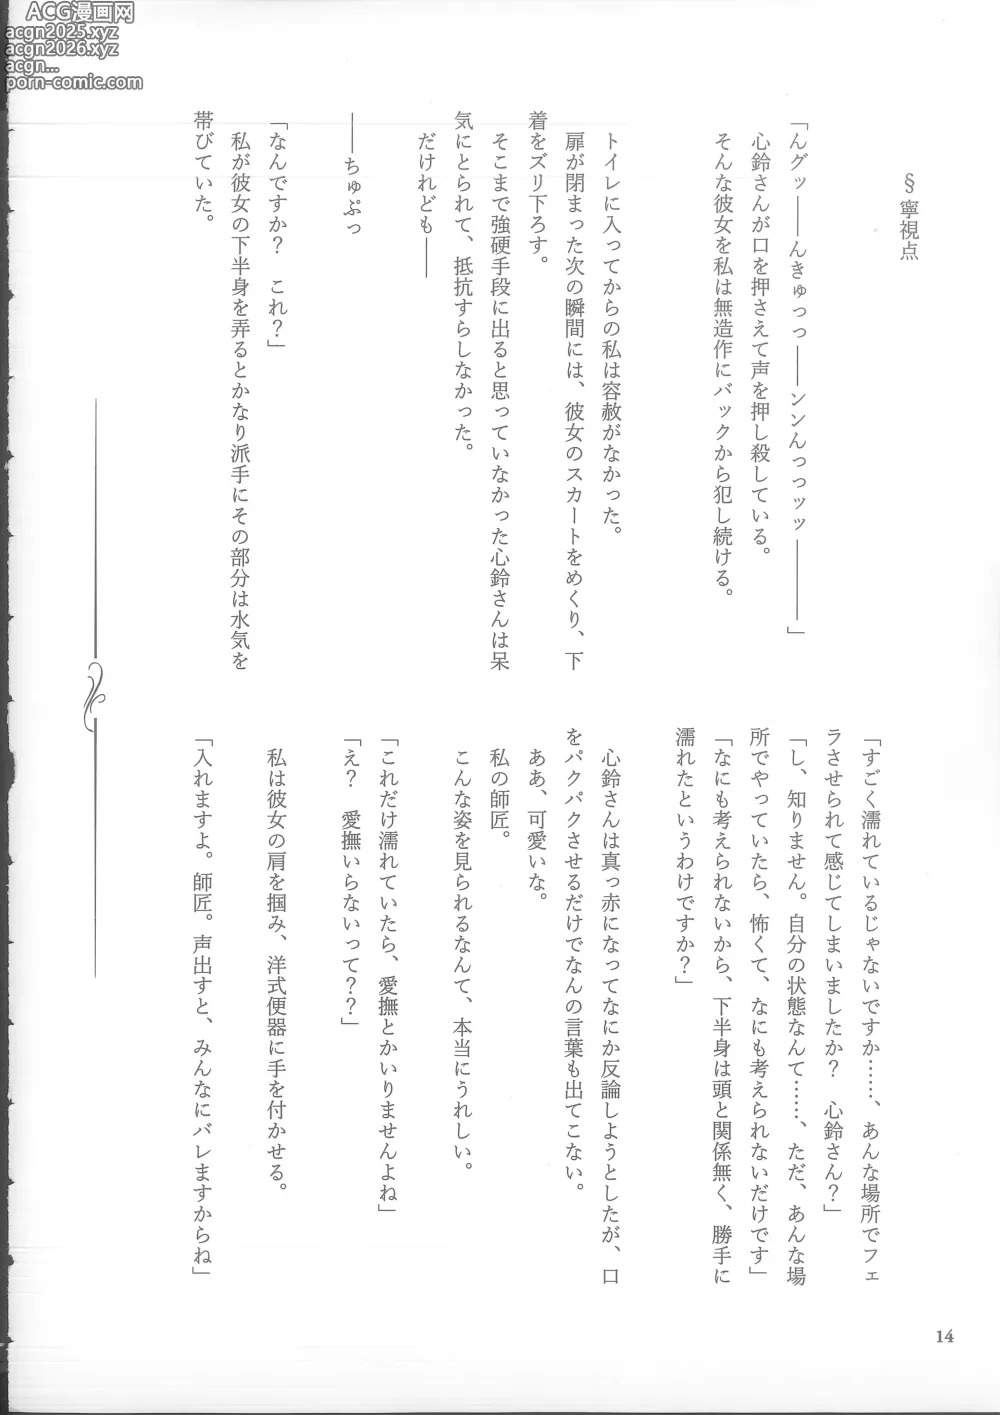 ACG漫画网
acgn2025.xyz
acgn2026.xyz
acgn...
porn-comic.com
§寧視点
「んグッ――んきゅっっ――ンンんっっッッ――――」
心鈴さんが口を押さえて声を押し殺している。
そんな彼女を私は無造作にバックから犯し続ける。
トイレに入ってからの私は容赦がなかった。
扉が閉まった次の瞬間には、彼女のスカートをめくり、下
着をズリ下ろす。
そこまで強硬手段に出ると思っていなかった心鈴さんは呆
気にとられて、抵抗すらしなかった。
だけれども――
――ちゅぷっ
「なんですか？　これ？」
私が彼女の下半身を弄るとかなり派手にその部分は水気を
帯びていた。
「すごく濡れているじゃないですか……、あんな場所でフェ
ラさせられて感じてしまいましたか？　心鈴さん？」
「し、知りません。自分の状態なんて……、ただ、あんな場
所でやっていたら、怖くて、なにも考えられないだけです」
「なにも考えられないから、下半身は頭と関係無く、勝手に
濡れたというわけですか？」
心鈴さんは真っ赤になってなにか反論しようとしたが、口
をパクパクさせるだけでなんの言葉も出てこない。
ああ、可愛いな。
私の師匠。
こんな姿を見られるなんて、本当にうれしい。
「これだけ濡れていたら、愛撫とかいりませんよね」
「え？　愛撫いらないって？？」
私は彼女の肩を掴み、洋式便器に手を付かせる。
「入れますよ。師匠。声出すと、みんなにバレますからね」
14